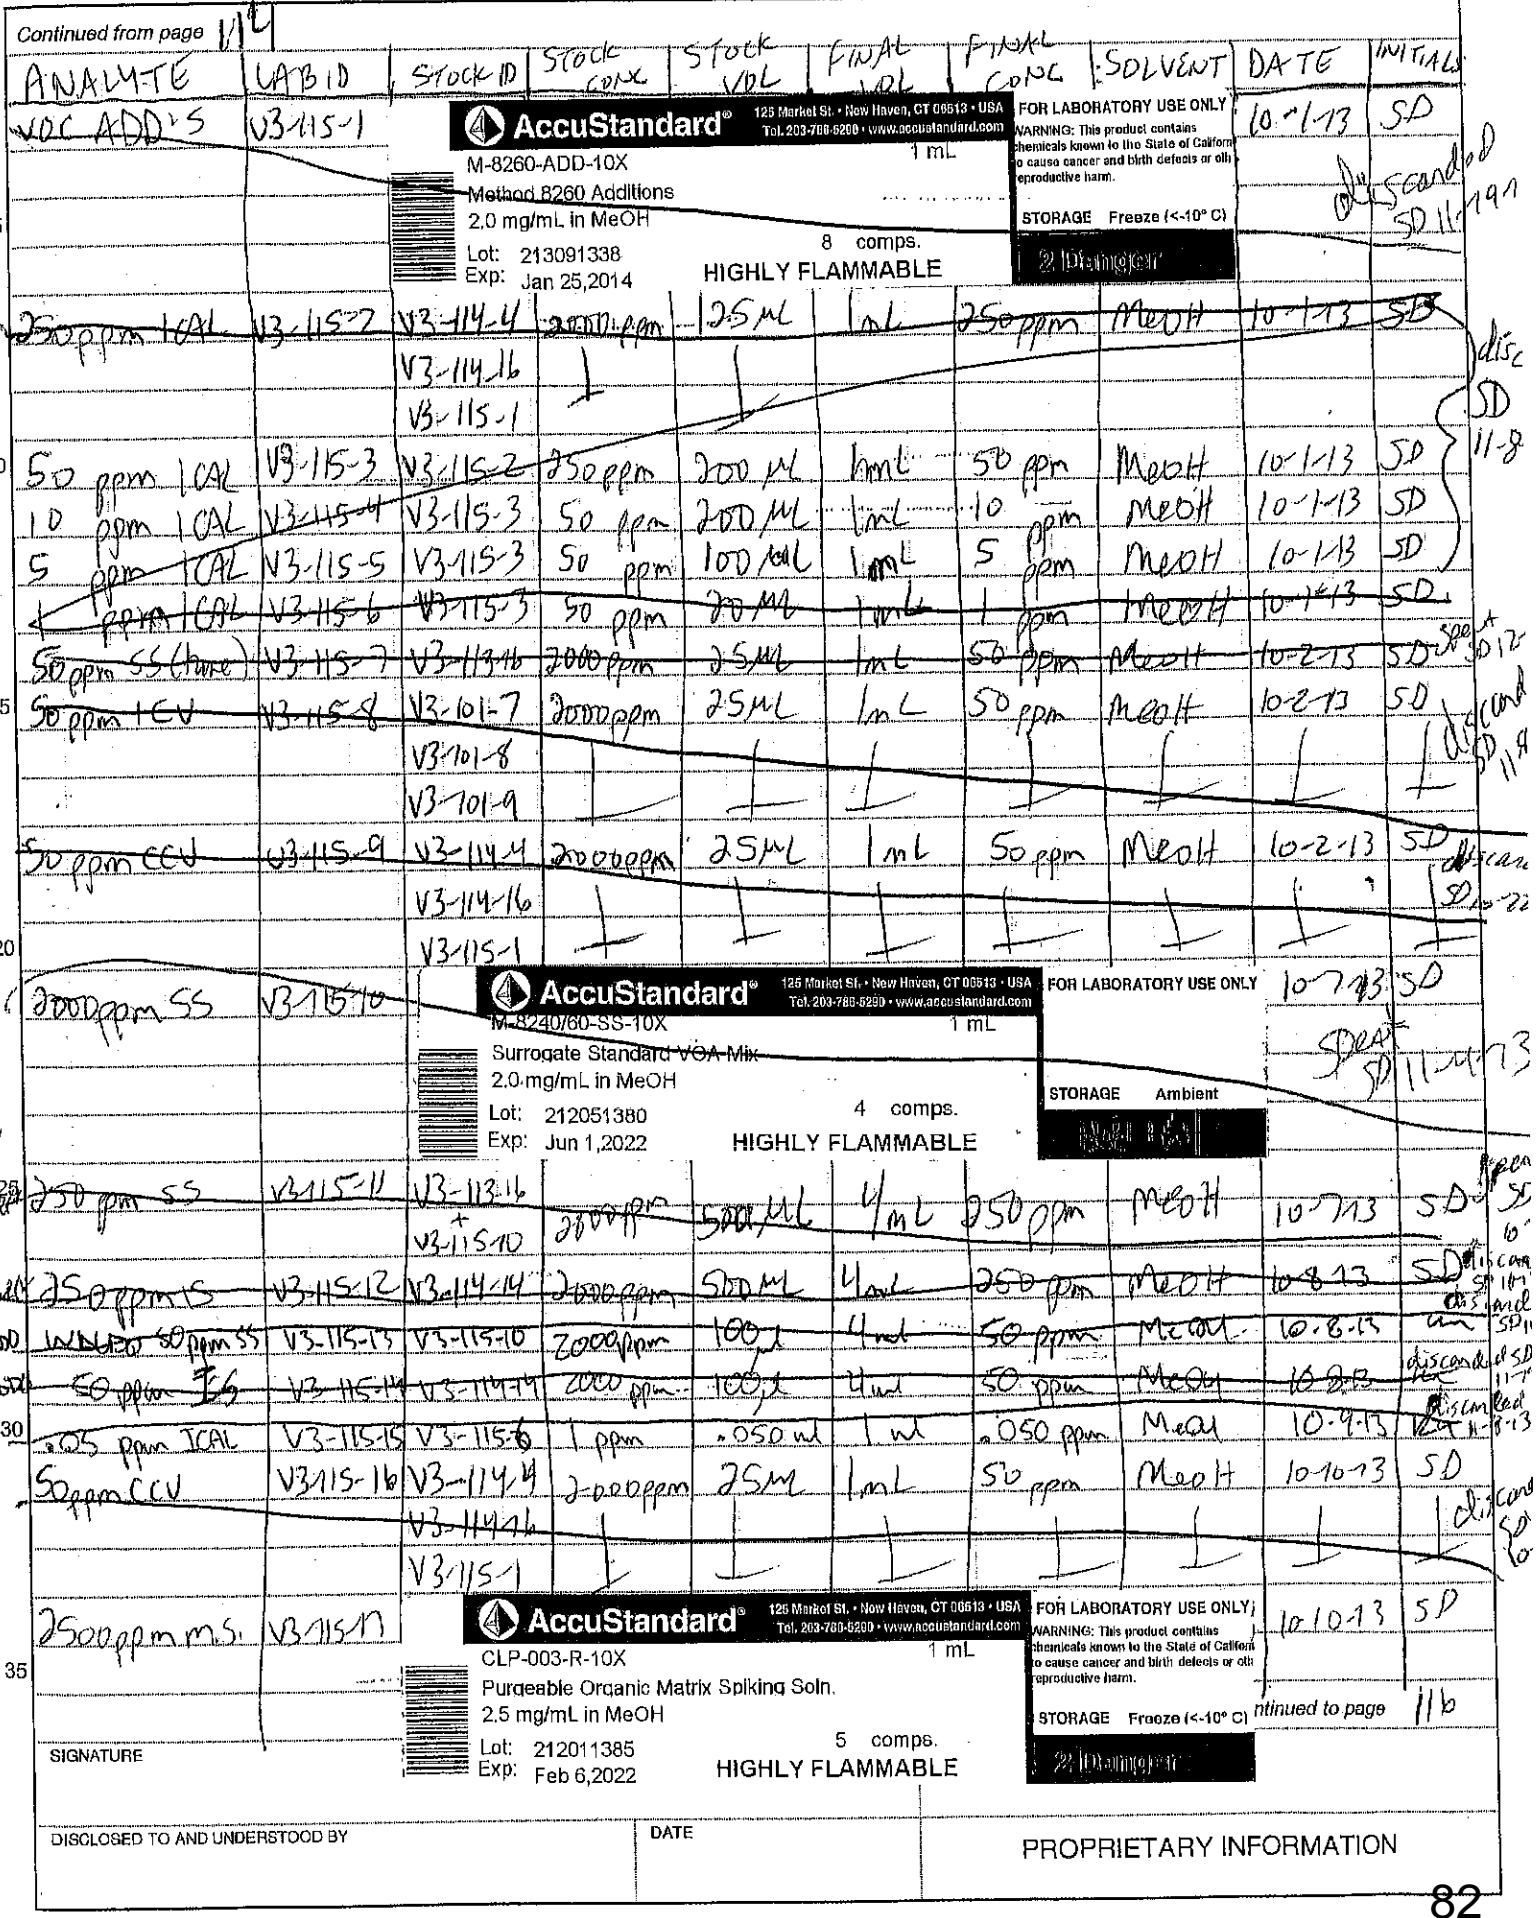 Continued from page 114
ANALYTE LAB ID STOCK ID STOCK CONC STOCK VOL FINAL VOL FINAL CONC SOLVENT DATE INITIALS
VOC ADD'S V3-115-1 10-1-13 SD
AccuStandard® 125 Market St. • New Haven, CT 06513 • USA
Tel. 203-786-5290 • www.accustandard.com
M-8260-ADD-10X 1 mL
Method 8260 Additions
2.0 mg/mL in MeOH
8 comps.
Lot: 213091338
Exp: Jan 25,2014 HIGHLY FLAMMABLE
FOR LABORATORY USE ONLY
WARNING: This product contains
chemicals known to the State of Californ
o cause cancer and birth defects or oth
eproductive harm.
STORAGE Freeze (<-10° C)
2 Danger
discarded
SD 11-
250ppm ICAL V3-115-2 V3-114-4 2000ppm 125 µL 1mL 250ppm MeOH 10-1-13 SD
V3-114-16
V3-115-1
disc
SD
11-8
50 ppm ICAL V3-115-3 V3-115-2 250ppm 200 µL 1mL 50 ppm MeOH 10-1-13 SD
10 ppm ICAL V3-115-4 V3-115-3 50 ppm 200 µL 1mL 10 ppm MeOH 10-1-13 SD
5 ppm ICAL V3-115-5 V3-115-3 50 ppm 100 µL 1mL 5 ppm MeOH 10-1-13 SD
1 ppm ICAL V3-115-6 V3-115-3 50 ppm 20 µL 1mL 1 ppm MeOH 10-1-13 SD
50ppm SS (tune) V3-115-7 V3-113-16 2000ppm 25 µL 1mL 50 ppm MeOH 10-2-13 SD spent SD 12-
50ppm ICV V3-115-8 V3-101-7 2000ppm 25 µL 1mL 50ppm MeOH 10-2-13 SD discard
V3-101-8 SD
V3-101-9
50 ppm CCV V3-115-9 V3-114-4 2000ppm 25 µL 1mL 50ppm MeOH 10-2-13 SD discar
V3-114-16 SD 10-22
20 V3-115-1
2000ppm SS V3-115-10 10-7-13 SD
AccuStandard® 125 Market St. • New Haven, CT 06513 • USA
Tel. 203-786-5290 • www.accustandard.com
M-8240/60-SS-10X 1 mL
Surrogate Standard VOA Mix
2.0 mg/mL in MeOH
Lot: 212051380 4 comps.
Exp: Jun 1,2022 HIGHLY FLAMMABLE
FOR LABORATORY USE ONLY
STORAGE Ambient
spent
SD 11-4-13
250 ppm SS V3-115-11 V3-113-16 2000ppm 500 µL 4mL 250ppm MeOH 10-7-13 SD
+
V3-115-10
250ppm IS V3-115-12 V3-114-14 2000ppm 500 µL 4mL 250 ppm MeOH 10-8-13 SD
50ppm SS V3-115-13 V3-115-10 2000ppm 100µl 4ml 50 ppm MeOH 10-8-13
50 ppm IS V3-115-14 V3-114-14 2000 ppm 100µl 4ml 50 ppm MeOH 10-8-13 discarded SD
30 .05 ppm ICAL V3-115-15 V3-115-6 1 ppm .050 ml 1 ml .050 ppm MeOH 10-9-13 discarded 11-8-13
50ppm CCV V3-115-16 V3-114-4 2000ppm 25 µL 1mL 50 ppm MeOH 10-10-13 SD
V3-114-16
V3-115-1
2500ppm m.s. V3-115-17 10-10-13 SD
AccuStandard® 125 Market St. • New Haven, CT 06513 • USA
Tel. 203-786-5290 • www.accustandard.com
CLP-003-R-10X 1 mL
35
Purgeable Organic Matrix Spiking Soln.
2.5 mg/mL in MeOH
Lot: 212011385 5 comps.
Exp: Feb 6,2022 HIGHLY FLAMMABLE
FOR LABORATORY USE ONLY
WARNING: This product contains
chemicals known to the State of Californ
o cause cancer and birth defects or oth
eproductive harm.
STORAGE Freeze (<-10° C)
2 Danger
ntinued to page 116
SIGNATURE
DISCLOSED TO AND UNDERSTOOD BY DATE PROPRIETARY INFORMATION
82